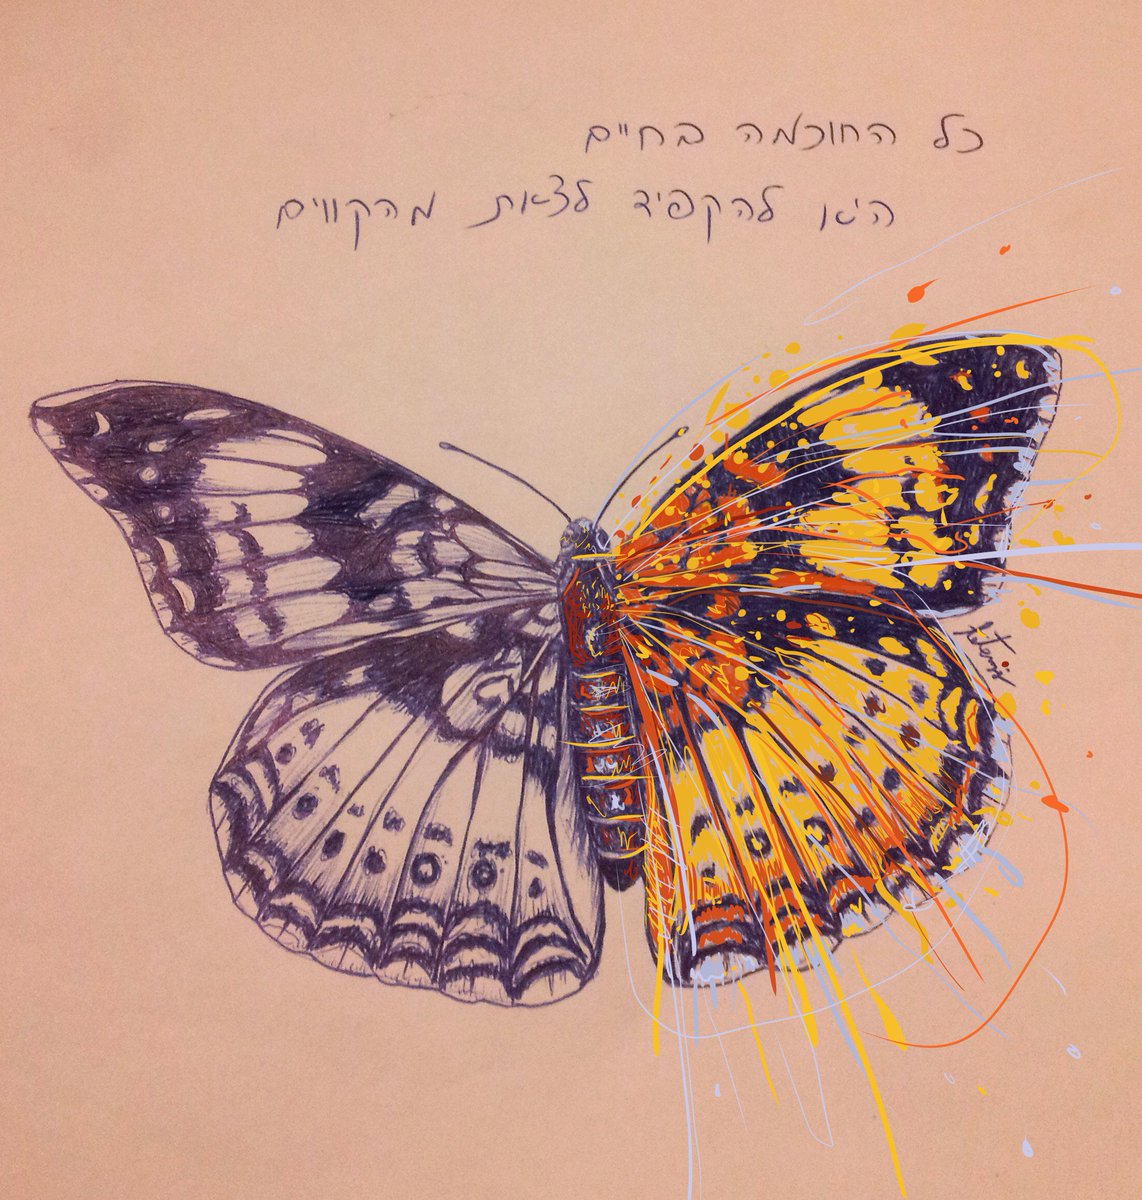 כל החוכמה בחיים
היא להקפיד לצאת מהקווים